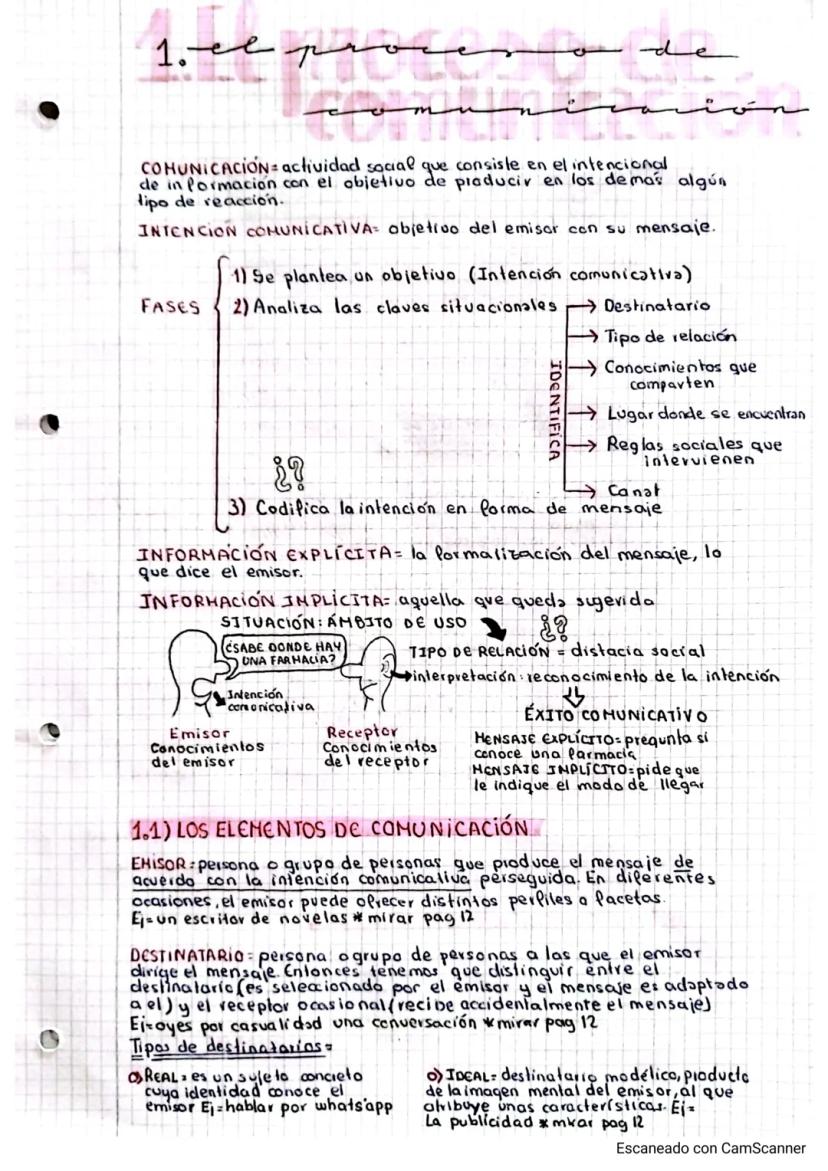 1. el proceso de
comunicación
COMUNICACIÓN= actividad social que consiste en el intencional
de información con el objetivo de producir en los demás algún
tipo de reacción.
INTENCIÓN COMUNICATIVA= objetivo del emisor con su mensaje.
FASES
1) Se plantea un objetivo (Intención comunicativa)
2) Analiza las claves situacionales
IDENTIFICA
→ Destinatario
→ Tipo de relación
→ Conocimientos que
comparten
→ Lugar donde se encuentran
→ Reglas sociales que
intervienen
→ Canal
¿?
3) Codifica la intención en forma de mensaje
INFORMACIÓN EXPLÍCITA= la formalización del mensaje, lo
que dice el emisor.
INFORMACIÓN IMPLÍCITA= aquella que queda sugerida
SITUACIÓN: ÁMBITO DE USO
¿?
¿SABE DONDE HAY
UNA FARMACIA?
TIPO DE RELACIÓN = distacia social
→interpretación: reconocimiento de la intención
Intención
comonicativa
ÉXITO COMUNICATIVO
Emisor
Conocimientos
del emisor
Receptor
Conocimientos
del receptor
MENSAJE EXPLÍCITO= pregunta si
conoce una farmacia
MENSAJE IMPLÍCITO= pide que
le indique el modo de llegar
1.1) LOS ELEMENTOS DE COMUNICACIÓN
EMISOR= persona o grupo de personas que produce el mensaje de
acuerdo con la intención comunicativa perseguida. En diferentes
ocasiones, el emisor puede ofrecer distintos perfiles o facetas.
Ej= un escritor de novelas * mirar pag 12
DESTINATARIO= persona o grupo de personas a las que el emisor
dirige el mensaje. Entonces tenemos que distinguir entre el
destinatario (es seleccionado por el emisor y el mensaje es adaptado
a el) y el receptor ocasional (recibe accidentalmente el mensaje)
Ej= oyes por casualidad una conversación * mirar pag 12
Tipos de destinatarios=
o) REAL= es un sujeto concreto
cuya identidad conoce el
emisor Ej= hablar por whats'app
o) IDEAL= destinatario modélico, producto
de la imagen mental del emisor, al que
atribuye unas características. Ej=
La publicidad * mirar pag 12
Escaneado con CamScanner